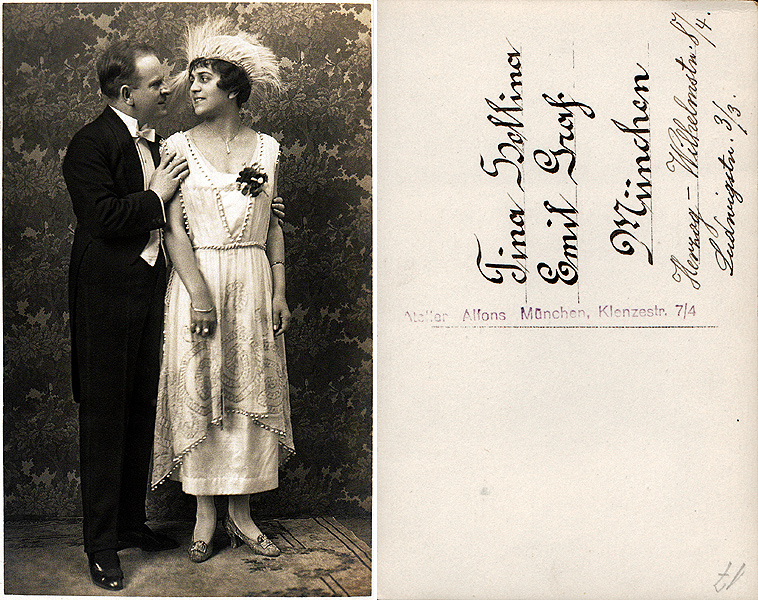 Tina Hollina
Emil Graf.
München
Herzog-Wilhelmstr. 8/4.
Ludwigstr. 3/3.
Atelier Alfons München, Klenzestr. 7/4